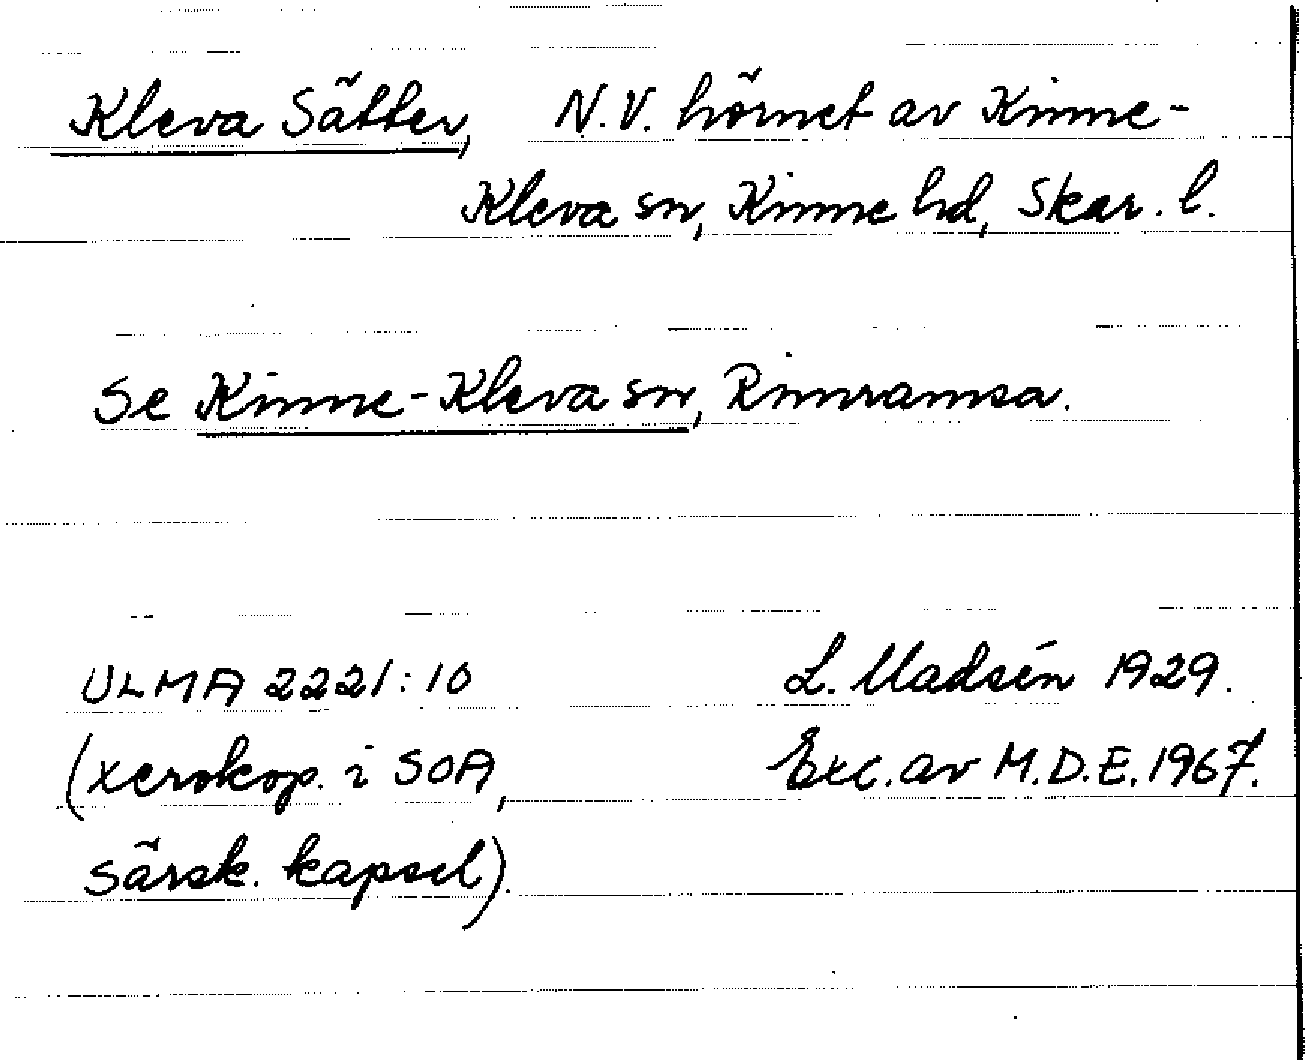 Kleva Sätter, N.V. hörnet av Kinne-
Kleva sn, Kinne hd, Skar. l.
Se Kinne-Kleva sn, Rimramsa.
ULMA 2221:10 L. Madsén 1929.
(xerokop. i SOA, Exc. av M.D.E. 1967.
särsk. kapsel).